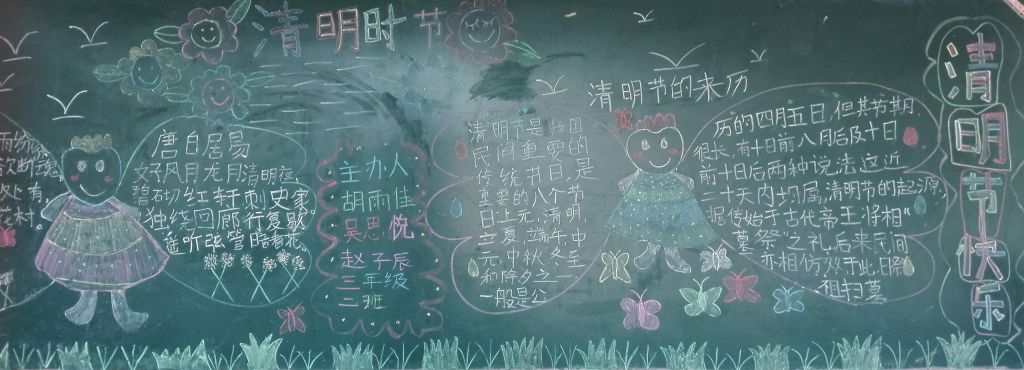 清明时节
雨纷纷
欲断魂
处有
村
唐白居易
好风月龙月清明夜
碧砌红轩刺史家
独绕回廊行复歇
遥听弦管暗看花。
主办人
胡雨佳
吴思悦
赵子辰
三年级
二班
清明节的来历
清明节是我国
民间重要的
传统节日,是
重要的八个节
日上元、清明、
立夏、端午、中
元、中秋、冬至
和除夕之一
一般是公
历的四月五日,但其节期
很长,有十日前八日后及十日
前十日后两种说法这近
二十天内均属清明节的起源,
据传始于古代帝王将相“
墓祭”之礼,后来民间
亦相仿效于此日祭
祖扫墓
清明节快乐